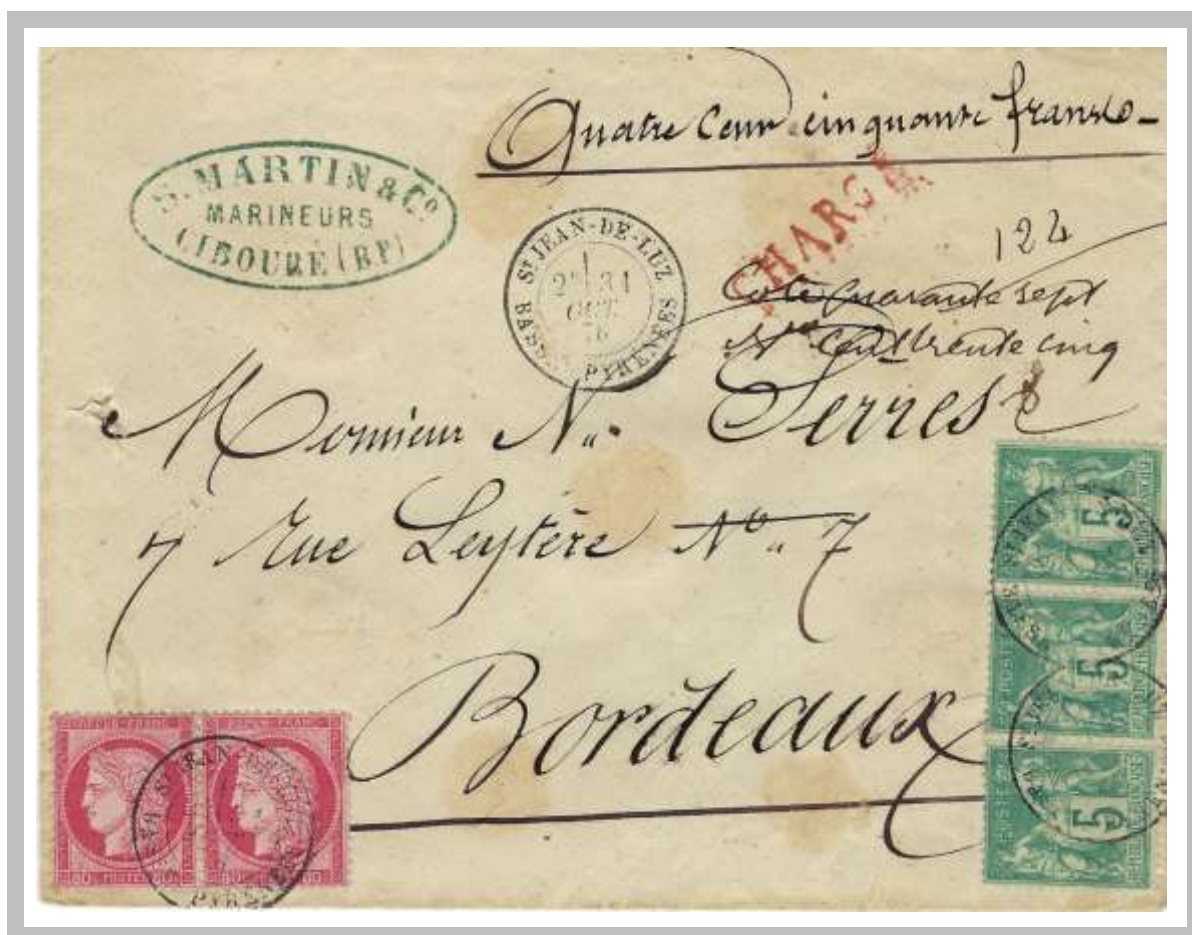 Quatre Cent cinquante francs
S. MARTIN & Co
MARINEURS
CIBOURE (BP)
CHARGÉ
ST JEAN-DE-LUZ
2E 31
OCT.
76
BASSES PYRENEES
122
Cote quarante sept
No Cent trente cinq
Monsieur N. Serres
7 Rue Leytère No. 7
Bordeaux
5
5
5
REPUB. FRANC.
80 POSTES 80